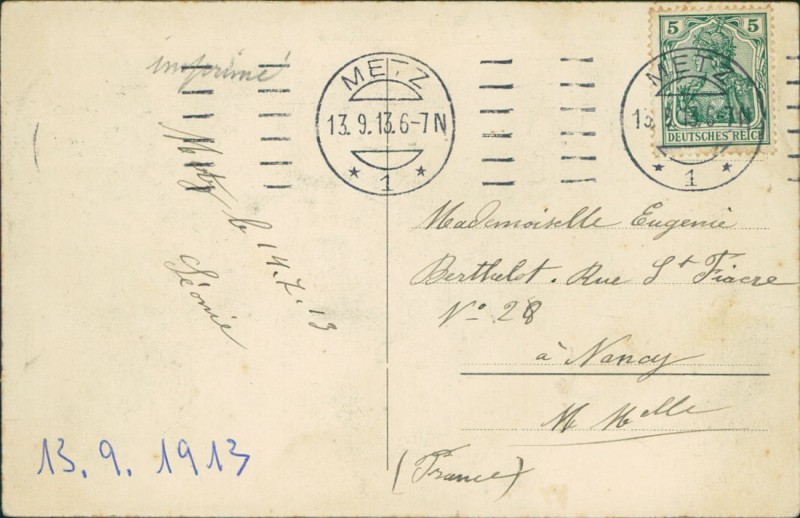 imprimé
METZ
13.9.13.6-7N
* 1 *
5 5
METZ
13.9.13.6-7N
DEUTSCHES REICH
* 1 *
Metz le 14.7.13
Léonie
Mademoiselle Eugenie
Berthelot. Rue St Fiacre
No 28
à Nancy
M Melle
(France)
13.9.1913